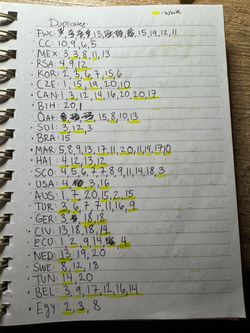 = uchik
Duplicates:
FWC: 13, 15, 19, 12, 11
CC: 10, 9, 6, 5
MEX: 3, 3, 8, 11, 13
RSA: 4, 9, 12
KOR: 2, 3, 6, 7, 15, 6
CZE: 1, 15, 19, 20, 10
CAN: 1, 3, 12, 14, 16, 20, 20, 17
BIH: 20, 1
Qat: 15, 8, 10, 13
SUI: 3, 12, 3
BRA: 15
MAR: 5, 8, 9, 13, 17, 11, 20, 11, 14, 17, 10
HAI: 4, 12, 13, 12
SCO: 4, 5, 6, 7, 7, 8, 9, 11, 14, 18, 3
USA: 4, 3, 16
AUS: 1, 7, 20, 15, 2, 15
TUR: 3, 6, 7, 7, 11, 16, 9
GER: 3, 18, 18
CIV: 13, 18, 18, 14
ECU: 1, 2, 9, 14, 4
NED: 13, 19, 20
SWE: 8, 12, 18
TUN: 14, 20
BEL: 3, 9, 17, 12, 16, 14
Egy: 2, 3, 8